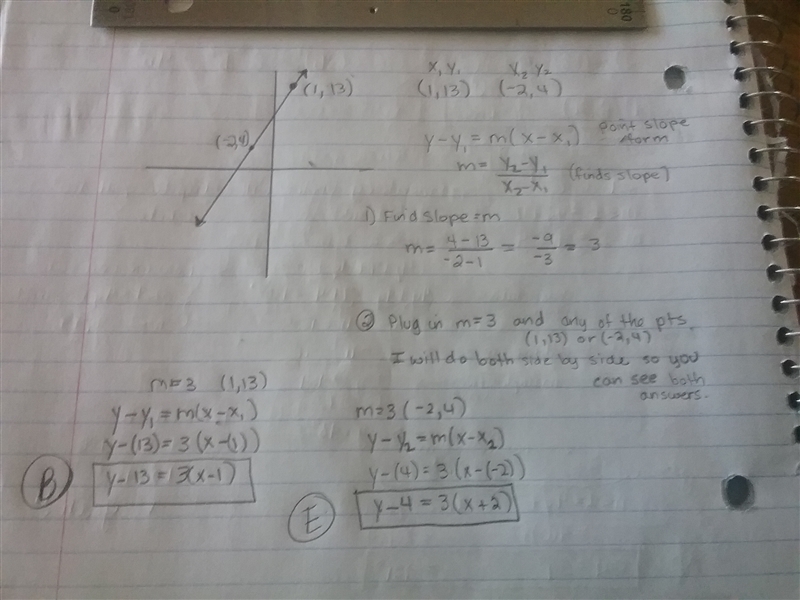 0
180
0
x₁ y₁ x₂ y₂
(1, 13) (-2, 4)
(1, 13)
(-2,4)
y-y₁ = m(x-x₁) point slope
form
m = y₂-y₁ / x₂-x₁ (finds slope)
1) Find slope = m
m = 4-13 / -2-1 = -9 / -3 = 3
② Plug in m=3 and any of the pts.
(1,13) or (-2,4)
I will do both side by side so you
can see both
answers.
m=3 (1,13)
y-y₁ = m(x-x₁)
y-(13) = 3(x-(1))
B y-13 = 3(x-1)
m=3 (-2,4)
y-y₂ = m(x-x₂)
y-(4) = 3(x-(-2))
E y-4 = 3(x+2)